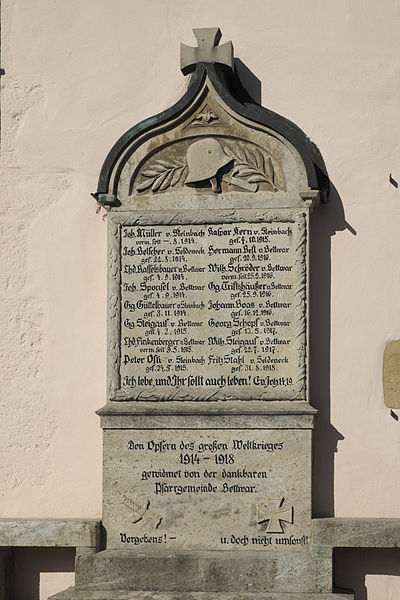 Joh. Müller v. Steinbach Kaspar Kern v. Steinbach
verm. seit – . 8. 1914. gef. 4. 10. 1915.
Joh. Beischer v. Seldeneck Hermann Beß v. Bettwar
gef. 22. 8. 1914. gef. 20. 9. 1916.
Lhd. Hasselbauer v. Bettwar Wilh. Schröder v. Bettwar
gef. 4. 9. 1914. verm. seit 25. 9. 1916.
Joh. Sponsel v. Bettwar Gg. Christhäußer v. Bettwar
gef. 4. 9. 1914. gef. 25. 9. 1916.
Gg. Güttelbauer v. Steinbach Johann Boas v. Bettwar
gef. 3. 11. 1914. gef. 16. 12. 1916.
Gg. Steigauf v. Bettwar Georg Schopf v. Bettwar
gef. 4. 2. 1915. gef. 13. 5. 1917.
Lhd. Finkenberger v. Bettwar Wilh. Steigauf v. Bettwar
verm. seit 9. 5. 1915. gef. 22. 7. 1917.
Peter Ott v. Steinbach Fritz Stahl v. Seldeneck
gef. 24. 5. 1915. gef. 31. 8. 1918.
Ich lebe, und Ihr sollt auch leben! Ev. Joh. 14, 19.
Den Opfern des großen Weltkrieges
1914 – 1918
gewidmet von der dankbaren
Pfarrgemeinde Bettwar.
Vergebens! – u. doch nicht umsonst